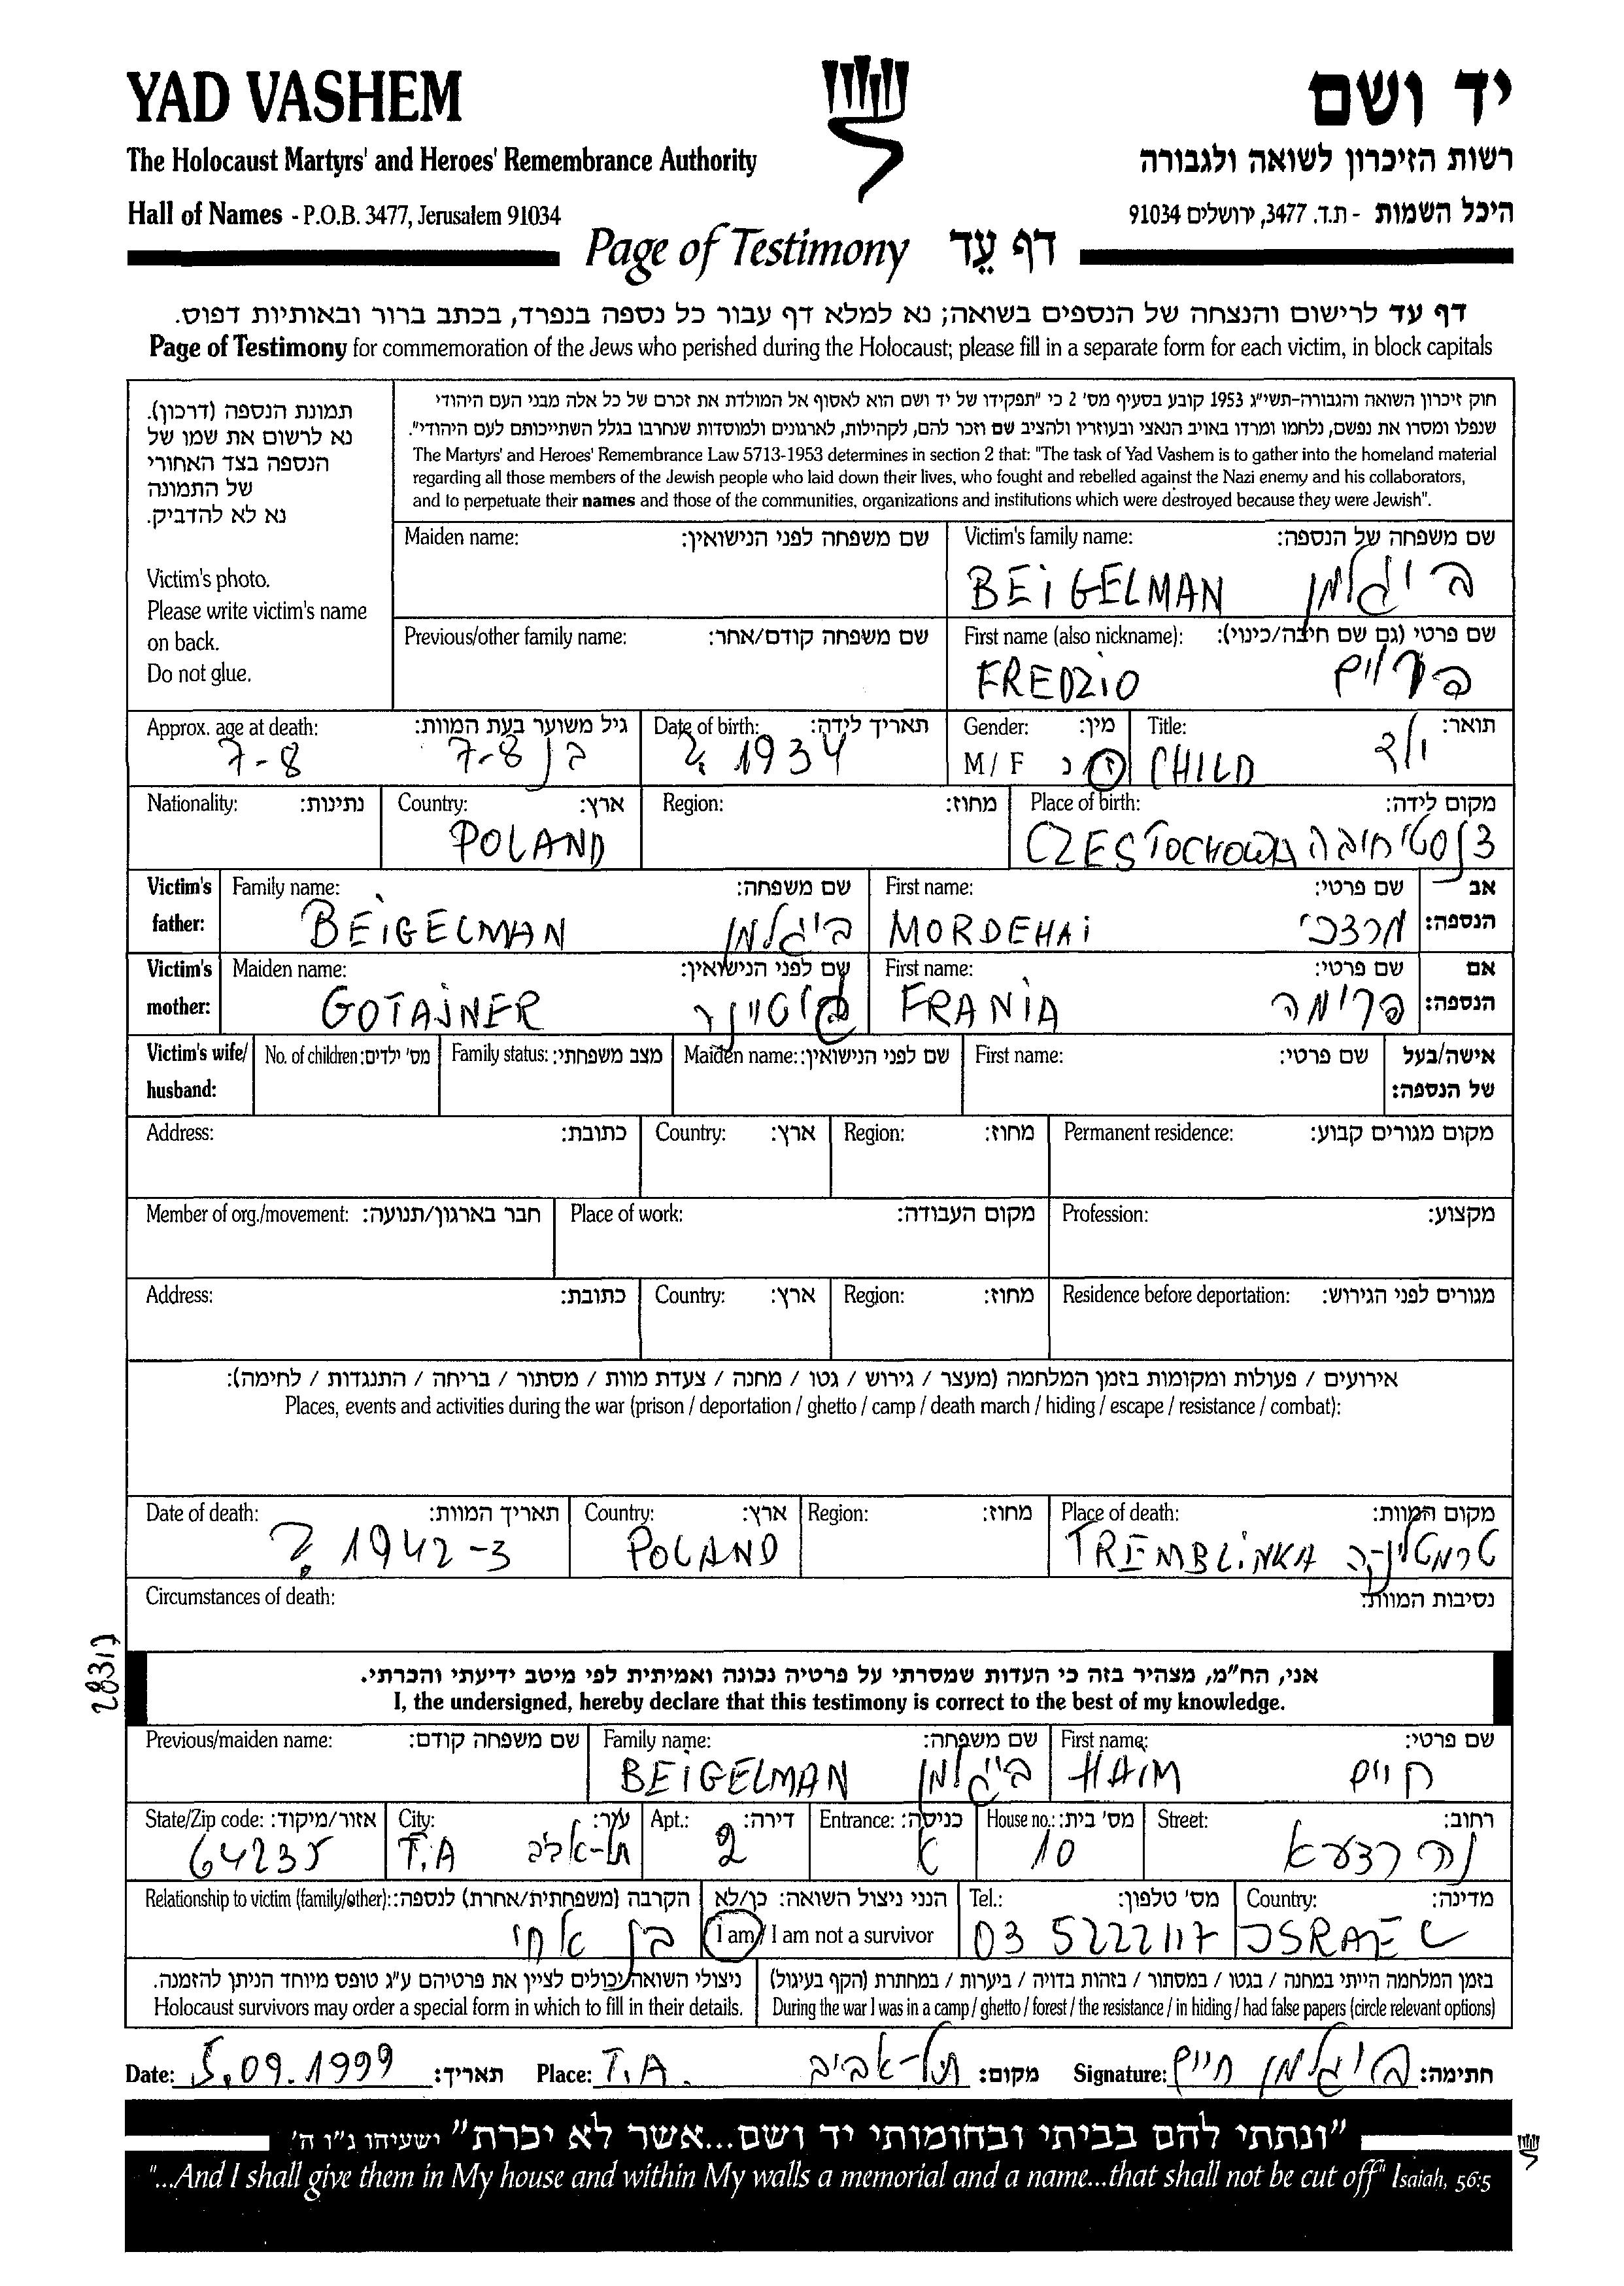 YAD VASHEM יד ושם
The Holocaust Martyrs' and Heroes' Remembrance Authority רשות הזיכרון לשואה ולגבורה
Hall of Names - P.O.B. 3477, Jerusalem 91034 היכל השמות - ת.ד. 3477, ירושלים 91034
Page of Testimony דף עֵד
דף עד לרישום והנצחה של הנספים בשואה; נא למלא דף עבור כל נספה בנפרד, בכתב ברור ובאותיות דפוס.
Page of Testimony for commemoration of the Jews who perished during the Holocaust; please fill in a separate form for each victim, in block capitals
תמונת הנספה (דרכון).
נא לרשום את שמו של
הנספה בצד האחורי
של התמונה
נא לא להדביק.
Victim's photo.
Please write victim's name
on back.
Do not glue.
חוק זיכרון השואה והגבורה-תשי"ג 1953 קובע בסעיף מס' 2 כי "תפקידו של יד ושם הוא לאסוף אל המולדת את זכרם של כל אלה מבני העם היהודי
שנפלו ומסרו את נפשם, נלחמו ומרדו באויב הנאצי ובעוזריו ולהציב שם וזכר להם, לקהילות, לארגונים ולמוסדות שנחרבו בגלל השתייכותם לעם היהודי".
The Martyrs' and Heroes' Remembrance Law 5713-1953 determines in section 2 that: "The task of Yad Vashem is to gather into the homeland material
regarding all those members of the Jewish people who laid down their lives, who fought and rebelled against the Nazi enemy and his collaborators,
and to perpetuate their names and those of the communities, organizations and institutions which were destroyed because they were Jewish".
Maiden name: שם משפחה לפני הנישואין: Victim's family name: שם משפחה של הנספה:
BEIGELMAN ביגלמן
Previous/other family name: שם משפחה קודם/אחר: First name (also nickname): שם פרטי (גם שם חיבה/כינוי):
FREDZIO
Approx. age at death: גיל משוער בעת המוות: Date of birth: תאריך לידה: Gender: מין: Title: תואר:
7-8 בן 7-8 ? 1934 M / F ז נ CHILD ילד
Nationality: נתינות: Country: ארץ: Region: מחוז: Place of birth: מקום לידה:
POLAND CZESTOCHOWA צ'נסטיחובה
Victim's father: Family name: שם משפחה: First name: שם פרטי: אב הנספה:
BEIGELMAN ביגלמן MORDEHAI מרדכי
Victim's mother: Maiden name: שם לפני הנישואין: First name: שם פרטי: אם הנספה:
GOTAJNER גוטיינר FRANIA
Victim's wife/ husband: No. of children: מס' ילדים: Family status: מצב משפחתי: Maiden name: שם לפני הנישואין: First name: שם פרטי: אישה/בעל של הנספה:
Address: כתובת: Country: ארץ: Region: מחוז: Permanent residence: מקום מגורים קבוע:
Member of org./movement: חבר בארגון/תנועה: Place of work: מקום העבודה: Profession: מקצוע:
Address: כתובת: Country: ארץ: Region: מחוז: Residence before deportation: מגורים לפני הגירוש:
אירועים / פעולות ומקומות בזמן המלחמה (מעצר / גירוש / גטו / מחנה / צעדת מוות / מסתור / בריחה / התנגדות / לחימה):
Places, events and activities during the war (prison / deportation / ghetto / camp / death march / hiding / escape / resistance / combat):
Date of death: תאריך המוות: Country: ארץ: Region: מחוז: Place of death: מקום המוות:
? 1942-3 POLAND TREMBLINKA
Circumstances of death: נסיבות המוות:
אני, הח"מ, מצהיר בזה כי העדות שמסרתי על פרטיה נכונה ואמיתית לפי מיטב ידיעתי והכרתי.
I, the undersigned, hereby declare that this testimony is correct to the best of my knowledge.
Previous/maiden name: שם משפחה קודם: Family name: שם משפחה: First name: שם פרטי:
BEIGELMAN ביגלמן HAIM חיים
State/Zip code: אזור/מיקוד: City: עיר: Apt.: דירה: Entrance: כניסה: House no.: מס' בית: Street: רחוב:
64235 T.A תל-אביב 2 א 10
Relationship to victim (family/other): הקרבה (משפחתית/אחרת) לנספה: הנני ניצול השואה: כן/לא Tel.: מס' טלפון: Country: מדינה:
בן אחי I am / I am not a survivor 03 5222117 ISRAEL
ניצולי השואה יכולים לציין את פרטיהם ע"ג טופס מיוחד הניתן להזמנה. בזמן המלחמה הייתי במחנה / בגטו / במסתור / בזהות בדויה / ביערות / במחתרת (הקף בעיגול)
Holocaust survivors may order a special form in which to fill in their details. During the war I was in a camp / ghetto / forest / the resistance / in hiding / had false papers (circle relevant options)
Date: 5.09.1999 תאריך: Place: T.A. תל-אביב מקום: Signature: ביגלמן חיים חתימה:
"ונתתי להם בביתי ובחומותי יד ושם...אשר לא יכרת" ישעיהו נ"ו ה'
"...And I shall give them in My house and within My walls a memorial and a name...that shall not be cut off" Isaiah, 56:5